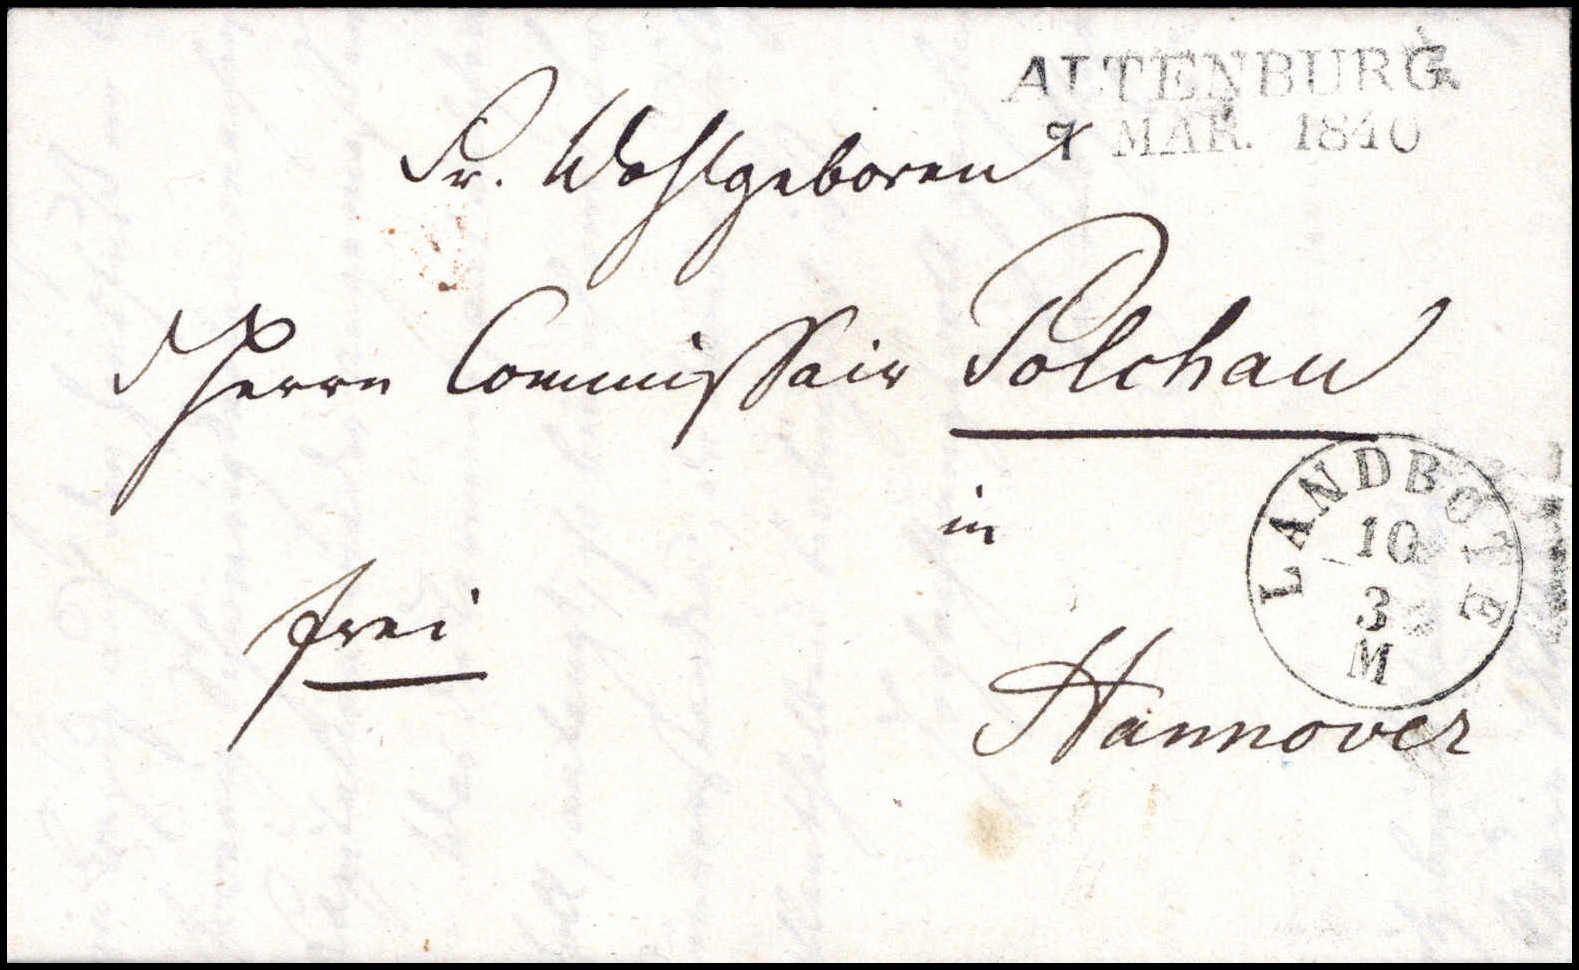 ALTENBURG
7 MAR. 1840
Sr. Wohlgeboren
Herrn Commissair Polchau
in
LANDBOTE
10
3
M
frei
Hannover